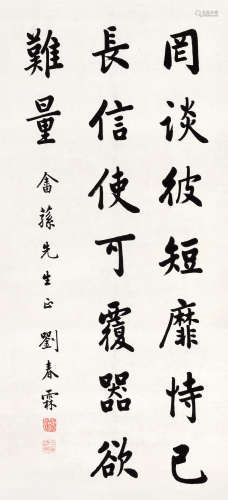 罔談彼短靡恃己
長信使可覆器欲
難量
畲蓀先生正 劉春霖